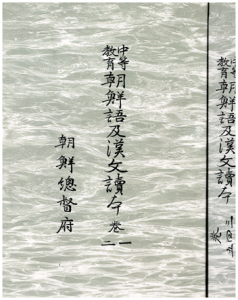 中等
教育 朝鮮語及漢文讀本 卷一二
朝鮮總督府
中等
教育 朝鮮語及漢文讀本